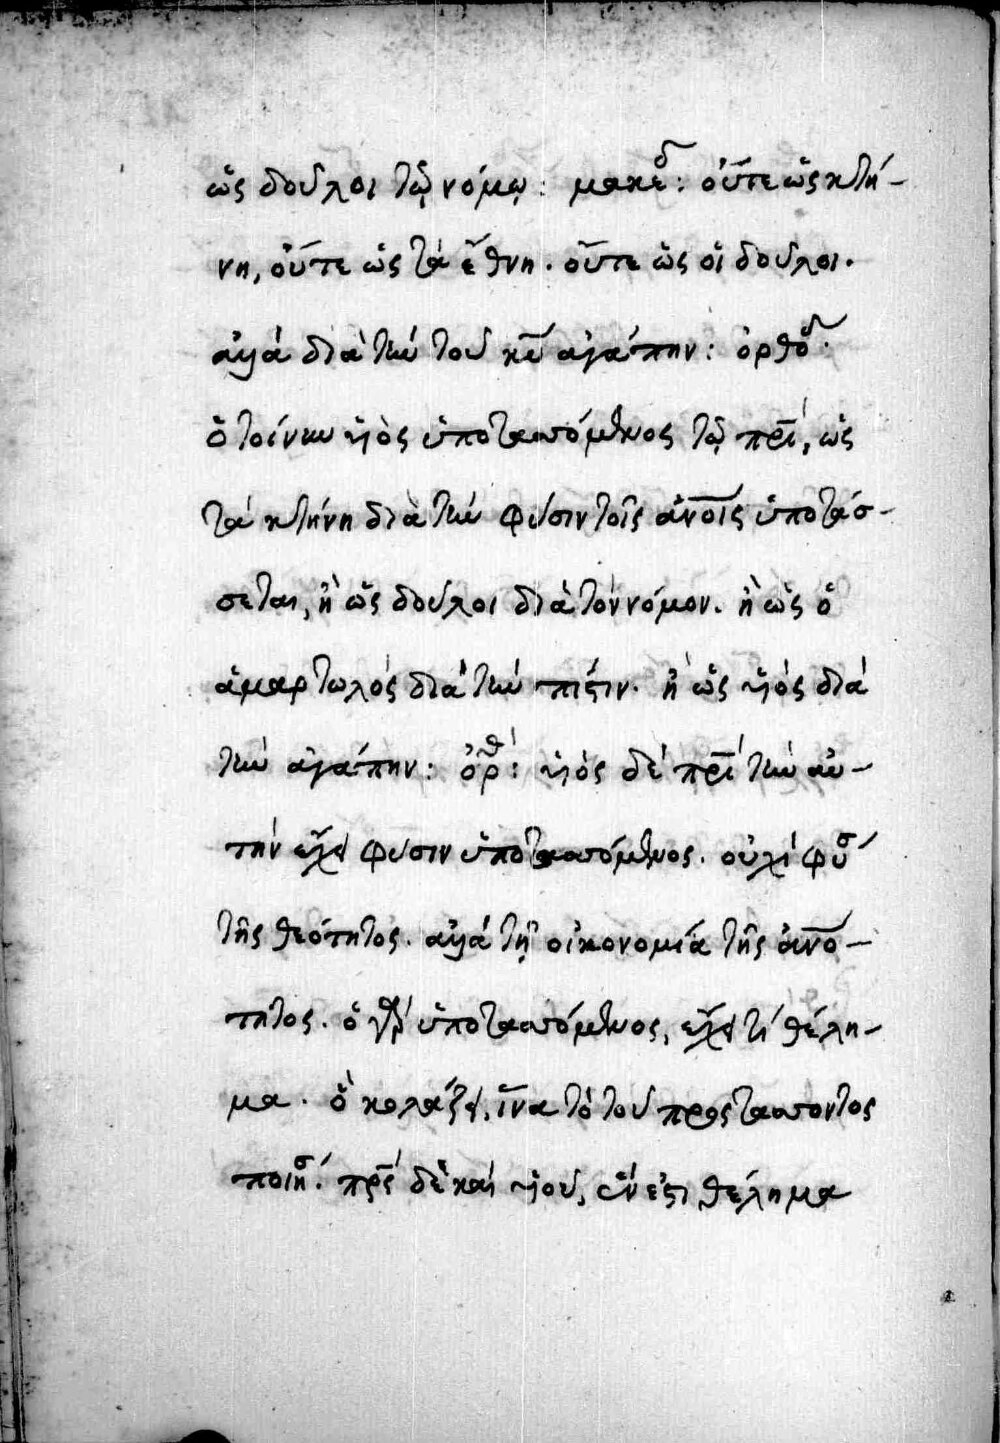 ὡς δοῦλοι τῷ νόμῳ : μακεδ : οὔτε ὡς κτή-
νη, οὔτε ὡς τὰ ἔθνη. οὔτε ὡς οἱ δοῦλοι.
ἀλλὰ διὰ τὴν τοῦ κυ ἀγάπην : ὀρθοδ.
ὁ τοίνυν υἱὸς ὑποτασσόμενος τῷ πρι, ὡς
τὰ κτήνη διὰ τὴν φύσιν τοῖς ἀνοις ὑποτάσ-
σεται, ἢ ὡς δοῦλοι διὰ τὸν νόμον. ἢ ὡς ὁ
ἁμαρτωλὸς διὰ τὴν πίστιν. ἢ ὡς υἱὸς διὰ
τὴν ἀγάπην : ὀρθ : υἱὸς δὲ πρι τὴν αὐ-
τὴν ἔχει φύσιν ὑποτασσόμενος. οὐχὶ φυσ
τῆς θεότητος. ἀλλὰ τῇ οἰκονομία τῆς ἀνο-
τητος. ὁ γὰρ ὑποτασσόμενος, ἔχει τί θέλη-
μα. ὃ κολάζει, ἵνα τὸ τοῦ προστάσσοντος
ποιησ. πρς δὲ καὶ υἱοῦ, ἕν ἐστι θέλημα